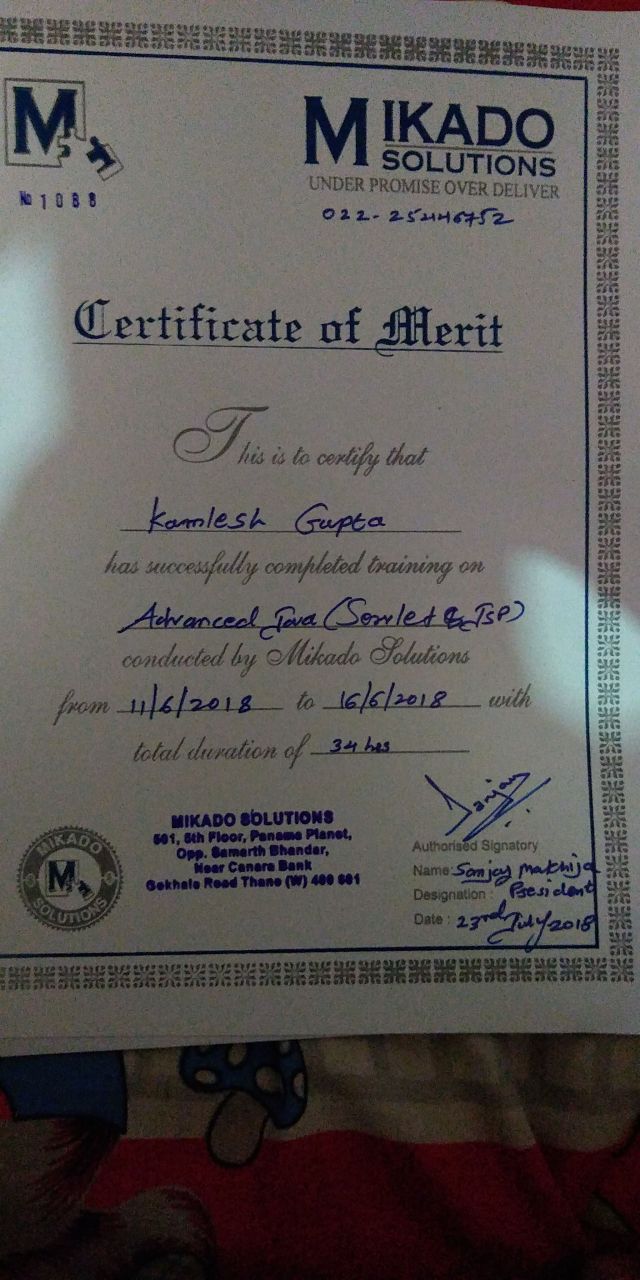 M
№ 1088
MIKADO
SOLUTIONS
UNDER PROMISE OVER DELIVER
022-25446752
Certificate of Merit
This is to certify that
Kamlesh Gupta
has successfully completed training on
Advanced Java (Servlet & JSP)
conducted by Mikado Solutions
from 11/6/2018 to 16/6/2018 with
total duration of 34 hrs
MIKADO SOLUTIONS
501, 5th Floor, Panama Planet,
Opp. Samarth Bhandar,
Near Canara Bank
Gokhale Road Thane (W) 400 601
MIKADO
M
SOLUTIONS
Sanjay
Authorised Signatory
Name: Sanjay Makhija
Designation : President
Date : 23rd July 2018